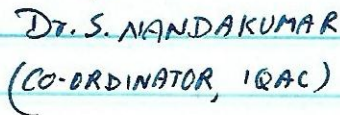 Dr. S. NANDAKUMAR
(CO-ORDINATOR, IQAC)